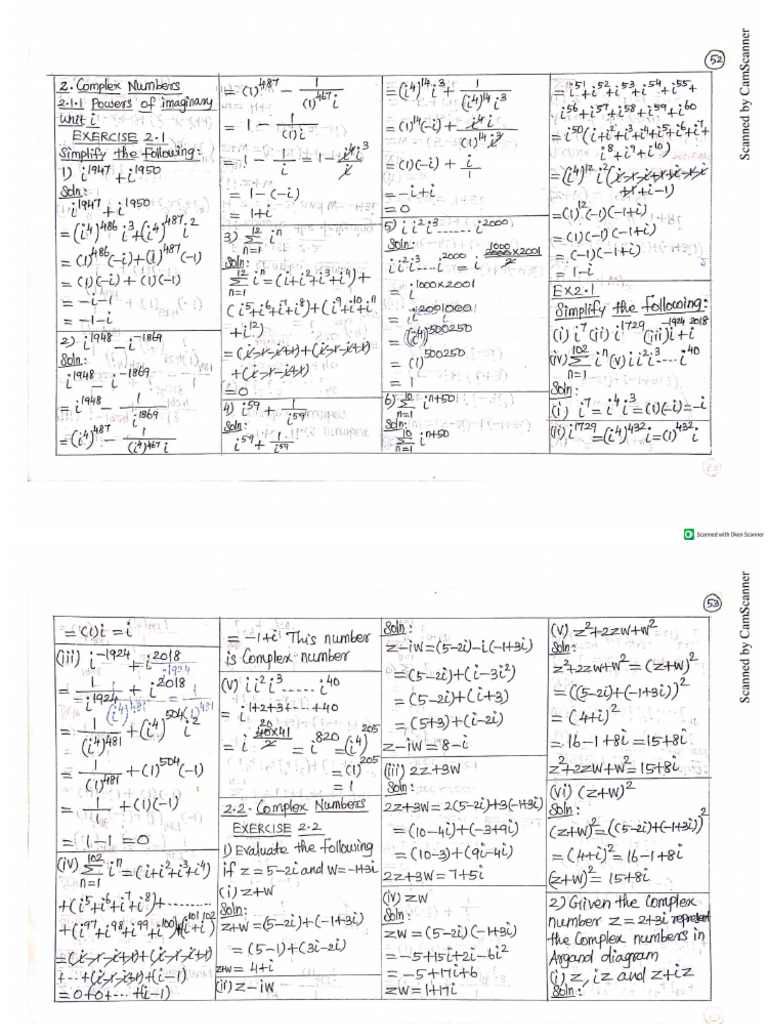 52
Scanned by CamScanner
2. Complex Numbers
2.1.1 Powers of imaginary
unit i
EXERCISE 2.1
Simplify the following:
1) i^1947 + i^1950
Soln:
i^1947 + i^1950
= (i^4)^486 i^3 + (i^4)^487 i^2
= (1)^486 (-i) + (1)^487 (-1)
= (1)(-i) + (1)(-1)
= -i-1
= -1-i
2) i^1948 - i^-1869
Soln:
i^1948 - i^-1869
= i^1948 - 1/i^1869
= (i^4)^487 - 1/((i^4)^467 i)
= (1)^487 - 1/((1)^467 i)
= 1 - 1/((1)i)
= 1 - 1/i = 1 - i^4 i^3/i
= 1 - (-i)
= 1+i
3) 12 Σ n=1 i^n
Soln:
12 Σ n=1 i^n = (i+i^2+i^3+i^4)+
(i^5+i^6+i^7+i^8)+(i^9+i^10+i^11
+i^12)
= (i-1-i+1)+(i-1-i+1)
+(i-1-i+1)
= 0
4) i^59 + 1/i^59
Soln:
i^59 + 1/i^59
= (i^4)^14 i^3 + 1/((i^4)^14 i^3)
= (1)^14 (-i) + i^4 i/((1)^14 i^3)
= (1)(-i) + i/1
= -i+i
= 0
5) i i^2 i^3 ....... i^2000
Soln:
i i^2 i^3 .... i^2000 = i^(1000 2000×2001/2)
= i^1000×2001
= i^2001000
= (i^4)^500250
= (1)^500250
= 1
6) 10 Σ n=1 i^n+50
Soln:
10 Σ n=1 i^n+50
= i^51+i^52+i^53+i^54+i^55+
i^56+i^57+i^58+i^59+i^60
= i^50 (i+i^2+i^3+i^4+i^5+i^6+i^7+
i^8+i^9+i^10)
= (i^4)^12 i^2 (i-1-i+1+i-1-i
+1+i-1)
= (1)^12 (-1)(-1+i)
= (1)(-1)(-1+i)
= (-1)(-1+i)
= 1-i
EX 2.1
Simplify the following:
(i) i^7 (ii) i^1729 (iii) i^-1924 + i^2018
(iv) 102 Σ n=1 i^n (v) i i^2 i^3 .... i^40
Soln:
(i) i^7 = i^4 i^3 = (1)(-i) = -i
(ii) i^1729 = (i^4)^432 i = (1)^432 i
Scanned with Oken Scanner
53
Scanned by CamScanner
= (1)i = i
(iii) i^-1924 + i^2018
= 1/i^1924 + i^2018
= 1/(i^4)^481 + (i^4)^504 i^2
= 1/(1)^481 + (1)^504 (-1)
= 1/1 + (1)(-1)
= 1-1 = 0
(iv) 102 Σ n=1 i^n = (i+i^2+i^3+i^4)
+(i^5+i^6+i^7+i^8)+.........
+(i^97+i^98+i^99+i^100)+(i^101+i^102)
= (i-1-i+1)+(i-1-i+1)
+..+(i-1-i+1)+(i-1)
= 0+0+...+(i-1)
= -1+i This number
is Complex number
(v) i i^2 i^3 ...... i^40
= i^1+2+3+.....+40
= i^(20 40×41/2) = i^820 = (i^4)^205
= (1)^205
= 1
2.2. Complex Numbers
EXERCISE 2.2
1) Evaluate the following
if z = 5-2i and w = -1+3i
(i) z+w
Soln:
z+w = (5-2i)+(-1+3i)
= (5-1)+(3i-2i)
z+w = 4+i
(ii) z-iw
Soln:
z-iw = (5-2i)-i(-1+3i)
= (5-2i)+(i-3i^2)
= (5-2i)+(i+3)
= (5+3)+(i-2i)
z-iw = 8-i
(iii) 2z+3w
Soln:
2z+3w = 2(5-2i)+3(-1+3i)
= (10-4i)+(-3+9i)
= (10-3)+(9i-4i)
2z+3w = 7+5i
(iv) zw
Soln:
zw = (5-2i)(-1+3i)
= -5+15i+2i-6i^2
= -5+17i+6
zw = 1+17i
(v) z^2+2zw+w^2
Soln:
z^2+2zw+w^2 = (z+w)^2
= ((5-2i)+(-1+3i))^2
= (4+i)^2
= 16-1+8i = 15+8i
z^2+2zw+w^2 = 15+8i
(vi) (z+w)^2
Soln:
(z+w)^2 = ((5-2i)+(-1+3i))^2
= (4+i)^2 = 16-1+8i
(z+w)^2 = 15+8i
2) Given the Complex
number z = 2+3i represent
the Complex numbers in
Argand diagram
(i) z, iz and z+iz
Soln: